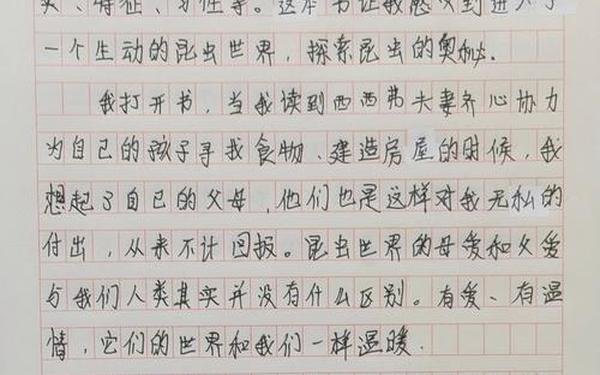 、特征、习性等。这本书让我感受到进入了
一个生动的昆虫世界，探索昆虫的奥秘.
我打开书，当我读到西西弗夫妻齐心协力
为自己的孩子寻找食物、建造房屋的时候，我
想起了自己的父母，他们也是这样对我无私的
付出，从来不计回报。昆虫世界的母爱和父爱
与我们人类其实并没有什么区别。有爱、有温
情，它们的世界和我们一样温暖.